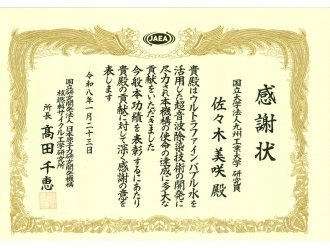 JAEA
感謝状
国立大学法人九州工業大学 研究員
佐々木 美咲 殿
貴殿はウルトラファインバブル水を
活用した超音波除染技術の開発に
尽力され本機構の使命の達成に多大な
貢献をいただきました
今般本功績を表彰するにあたり
貴殿の貢献に対して深く感謝の意を
表します
令和八年一月二十三日
国立研究開発法人日本原子力研究開発機構
核燃料サイクル工学研究所
所長 髙田 千恵